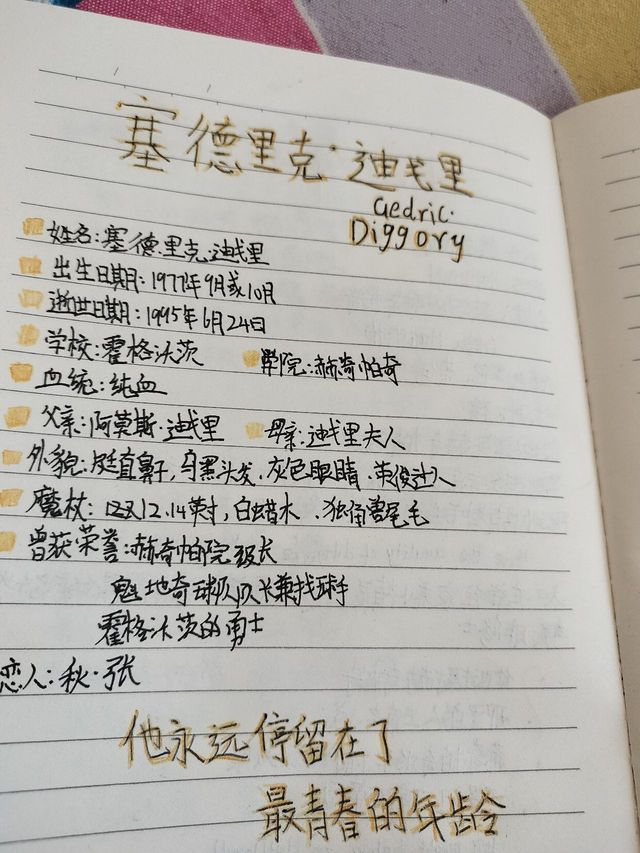 塞德里克·迪戈里
Cedric·
Diggory
姓名:塞德里克·迪戈里
出生日期:1977年9月或10月
逝世日期:1995年6月24日
学校:霍格沃茨 学院:赫奇帕奇
血统:纯血
父亲:阿莫斯·迪戈里 母亲:迪戈里夫人
外貌:挺直鼻子,乌黑头发,灰色眼睛,英俊过人
魔杖:12又1/2.14英寸,白蜡木.独角兽尾毛
曾获荣誉:赫奇帕奇院级长
魁地奇球队队长兼找球手
霍格沃茨的勇士
恋人:秋·张
他永远停留在了
最青春的年龄